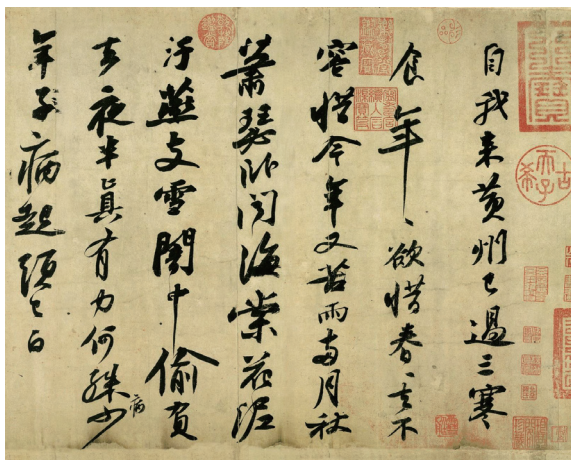 自我來黃州已過三寒
食年〻欲惜春〻去不
容惜今年又苦雨兩月秋
蕭瑟臥聞海棠花泥
汙燕支雪闇中偷負
去夜半真有力何殊病少
年子病起頭已白
古希天子